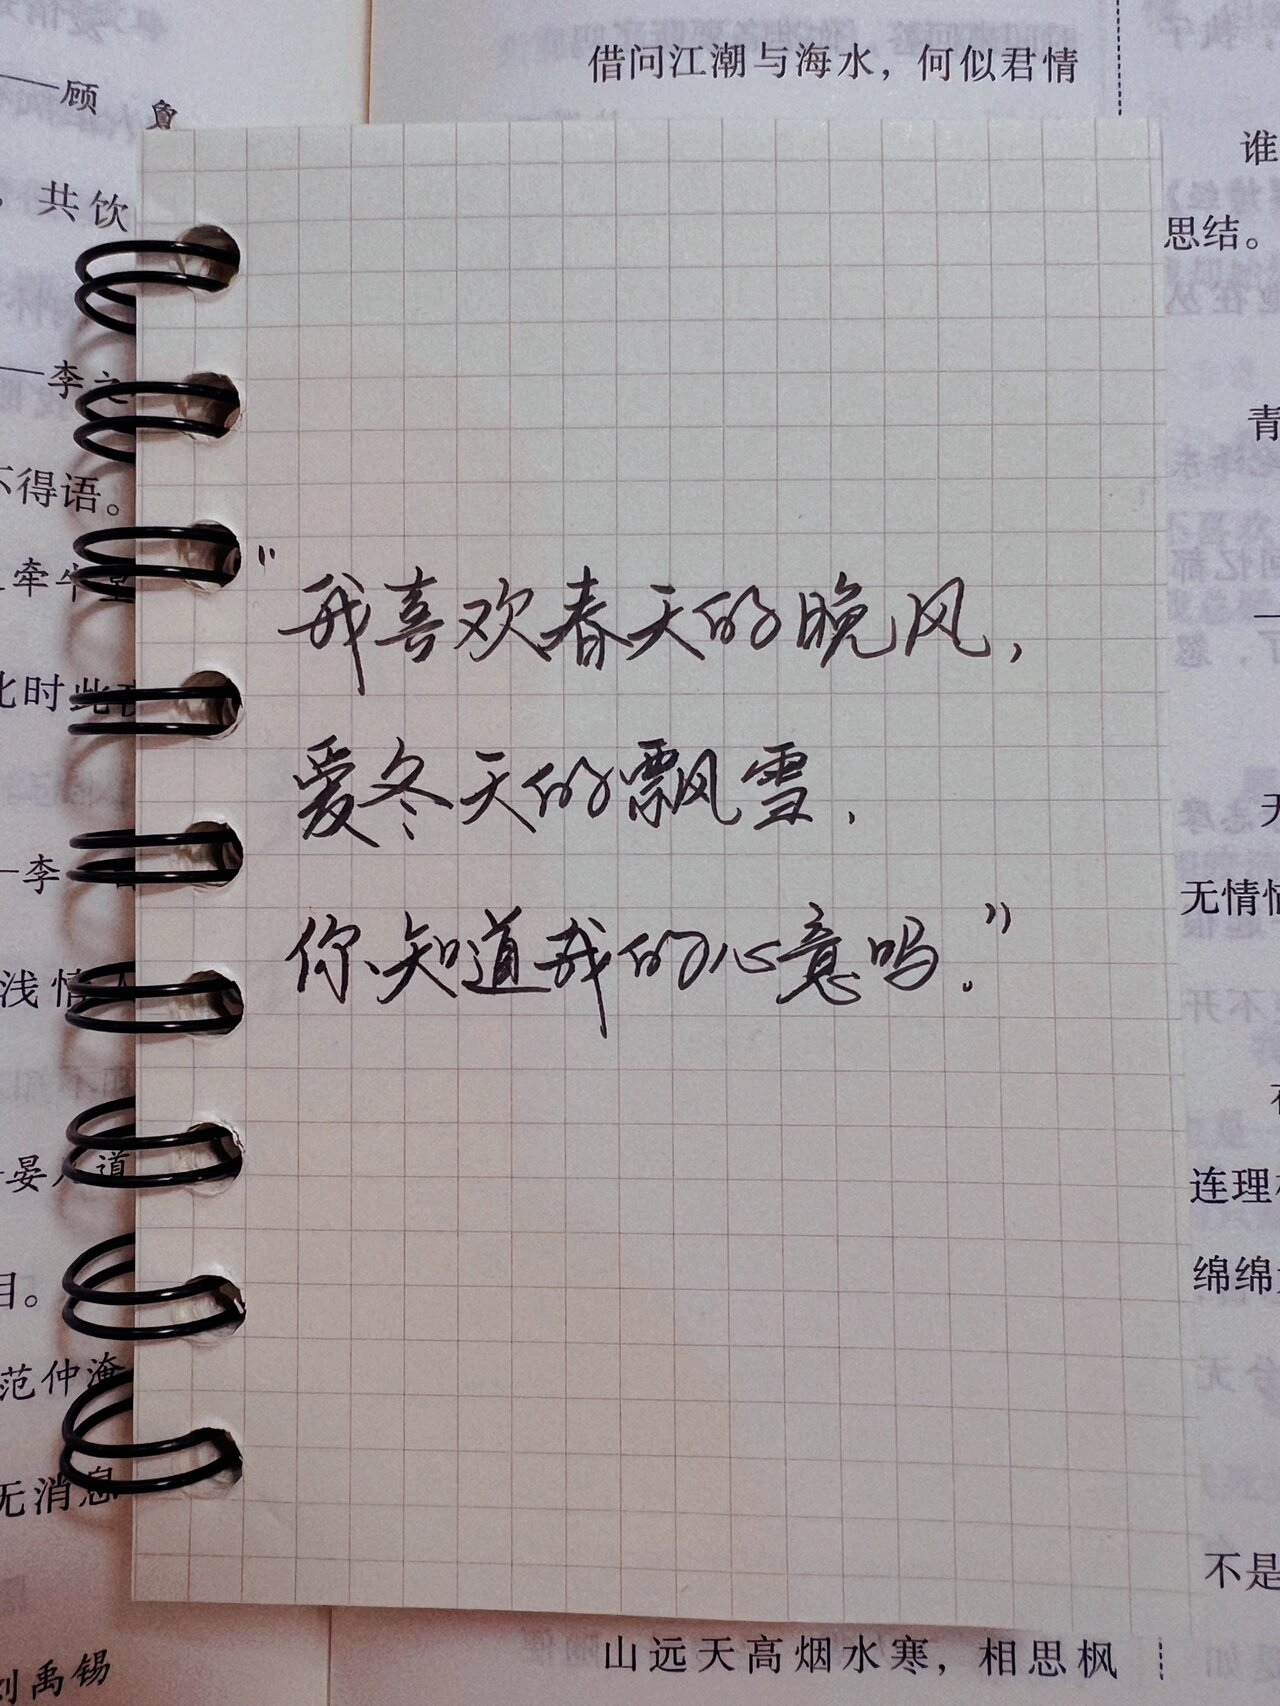 借问江潮与海水，何似君情
——顾夐
，共饮
谁
思结。
——李之
不得语。
青
牵牛
此时此
了，
无情
—李
浅情人
晏 道
连理
目。
绵绵
范仲淹
无消息
不是
刘禹锡
山远天高烟水寒，相思枫
"我喜欢春天的晚风，
爱冬天的飘雪.
你知道我的心意吗."